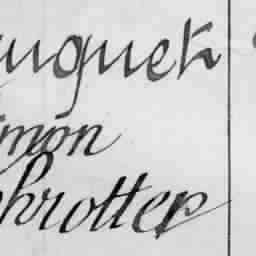 uquek
imon
hrotter